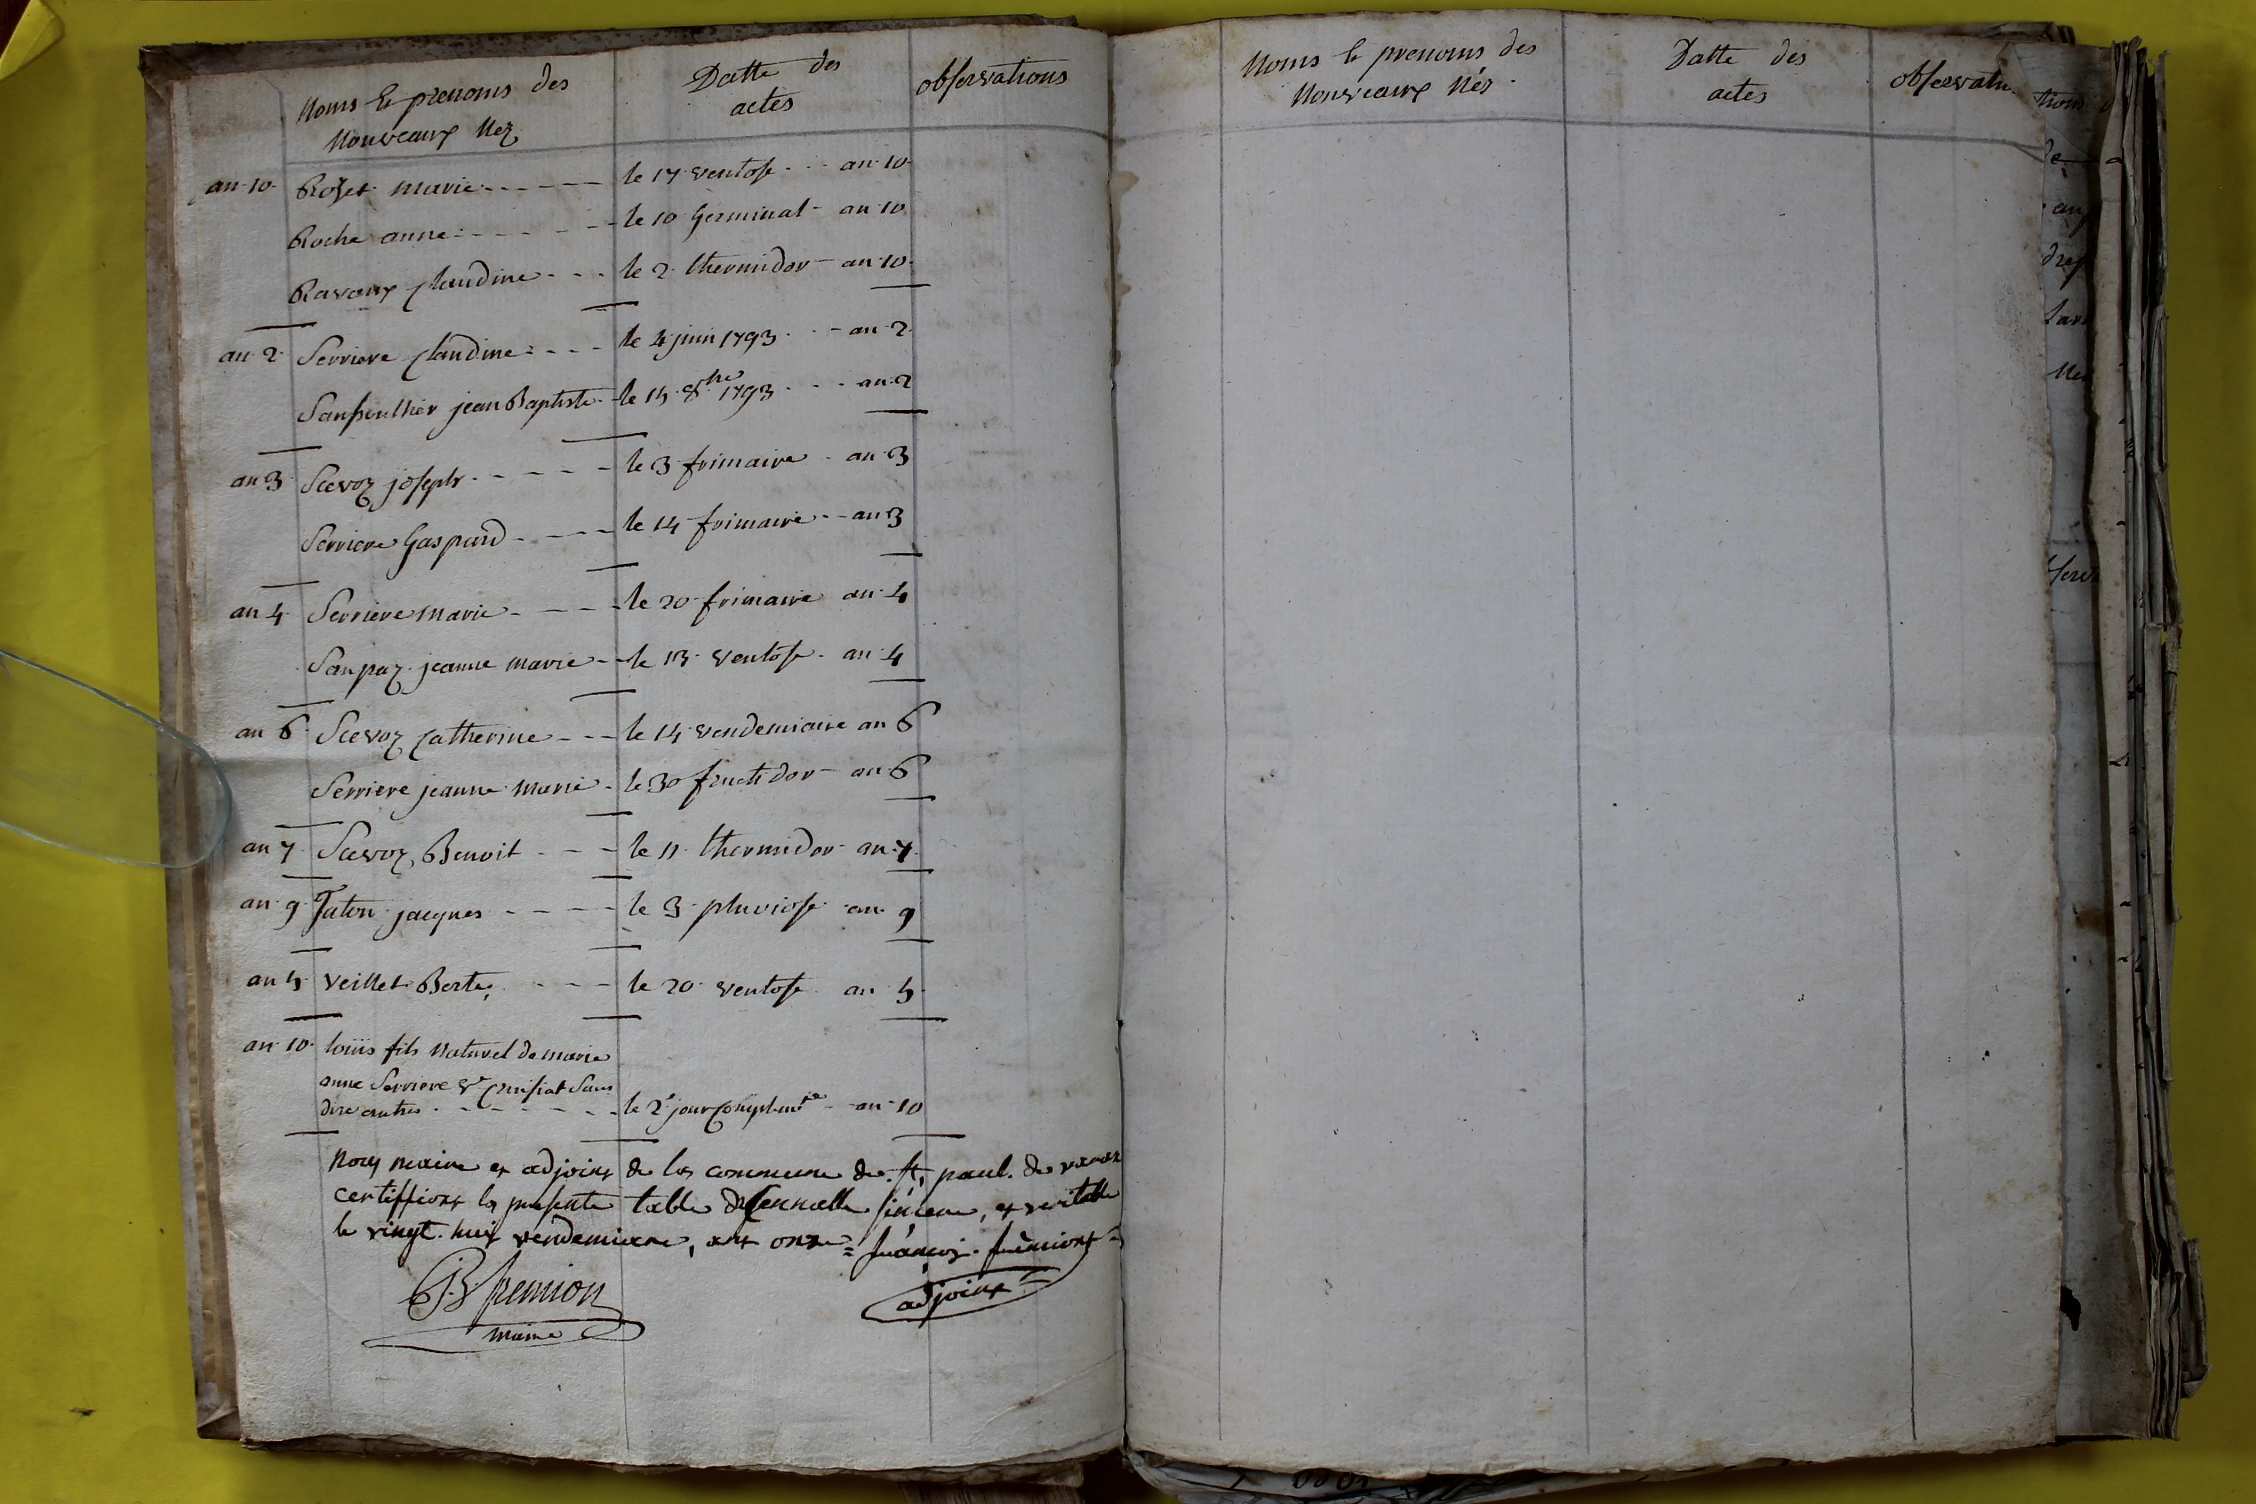 Noms & prenoms des
Nouveaux Nez
Datte des
actes
observations
an 10. Rozet marie - - - - - le 17 ventose - - - an 10.
Roche anne - - - - - le 10 Germinal - an 10
Ravoux Claudine - - - le 2 thermidor - an 10.
an 2. Serriere Claudine - - - le 4 juin 1793 - - - an 2
jean Baptiste - le 15 8bre 1793 - - - an 2
an 3 Scevoz joseph - - - - - le 3 frimaire - an 3
Serriere Gaspard - - - - le 14 frimaire - - an 3
an 4 Serriere marie - - - - le 20 frimaire an 4
Sanpaz jeanne marie - - le 13 ventose - an 4
an 6 Scevoz Catherine - - - le 14 vendemiaire an 6
Serriere jeanne marie - le 30 fructidor - an 6
an 7 Scevoz Benoit - - - le 11 thermidor - an 7.
an 9 Juton jacques - - - - le 3 pluviose an 9
an 5 Veillet Berte, - - - le 20 ventose an 5
an 10. loüis fils naturel de marie
anne Serriere ve Cruisiat sans
dire autres - - - - - - le 2e jour Complemte - an 10
Nous maire et adjoint de la commune de st, paul de varax
certiffions la presente table desennalle sincere, et veritable
le vingt huit vendemiaire, ant onze = françois fremiont =
JB fremion
maire
adjoint
Noms & prenoms des
Nouveaux Néz
Datte des
actes
observatio